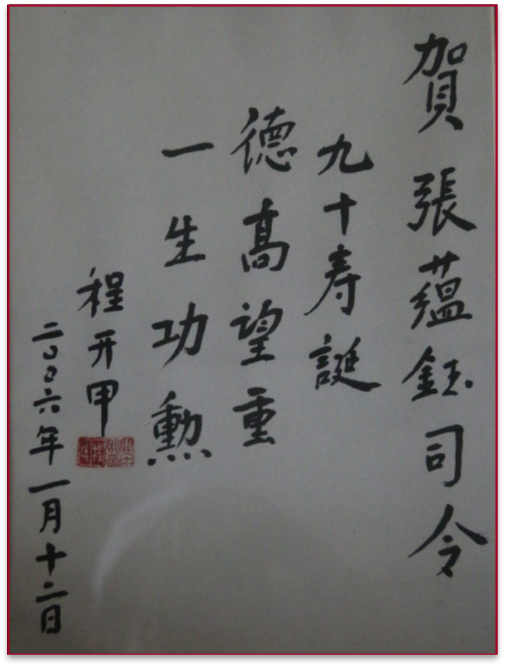 賀張蘊鈺司令
九十寿誕
德高望重
一生功勳
程开甲
二〇〇六年一月十二日